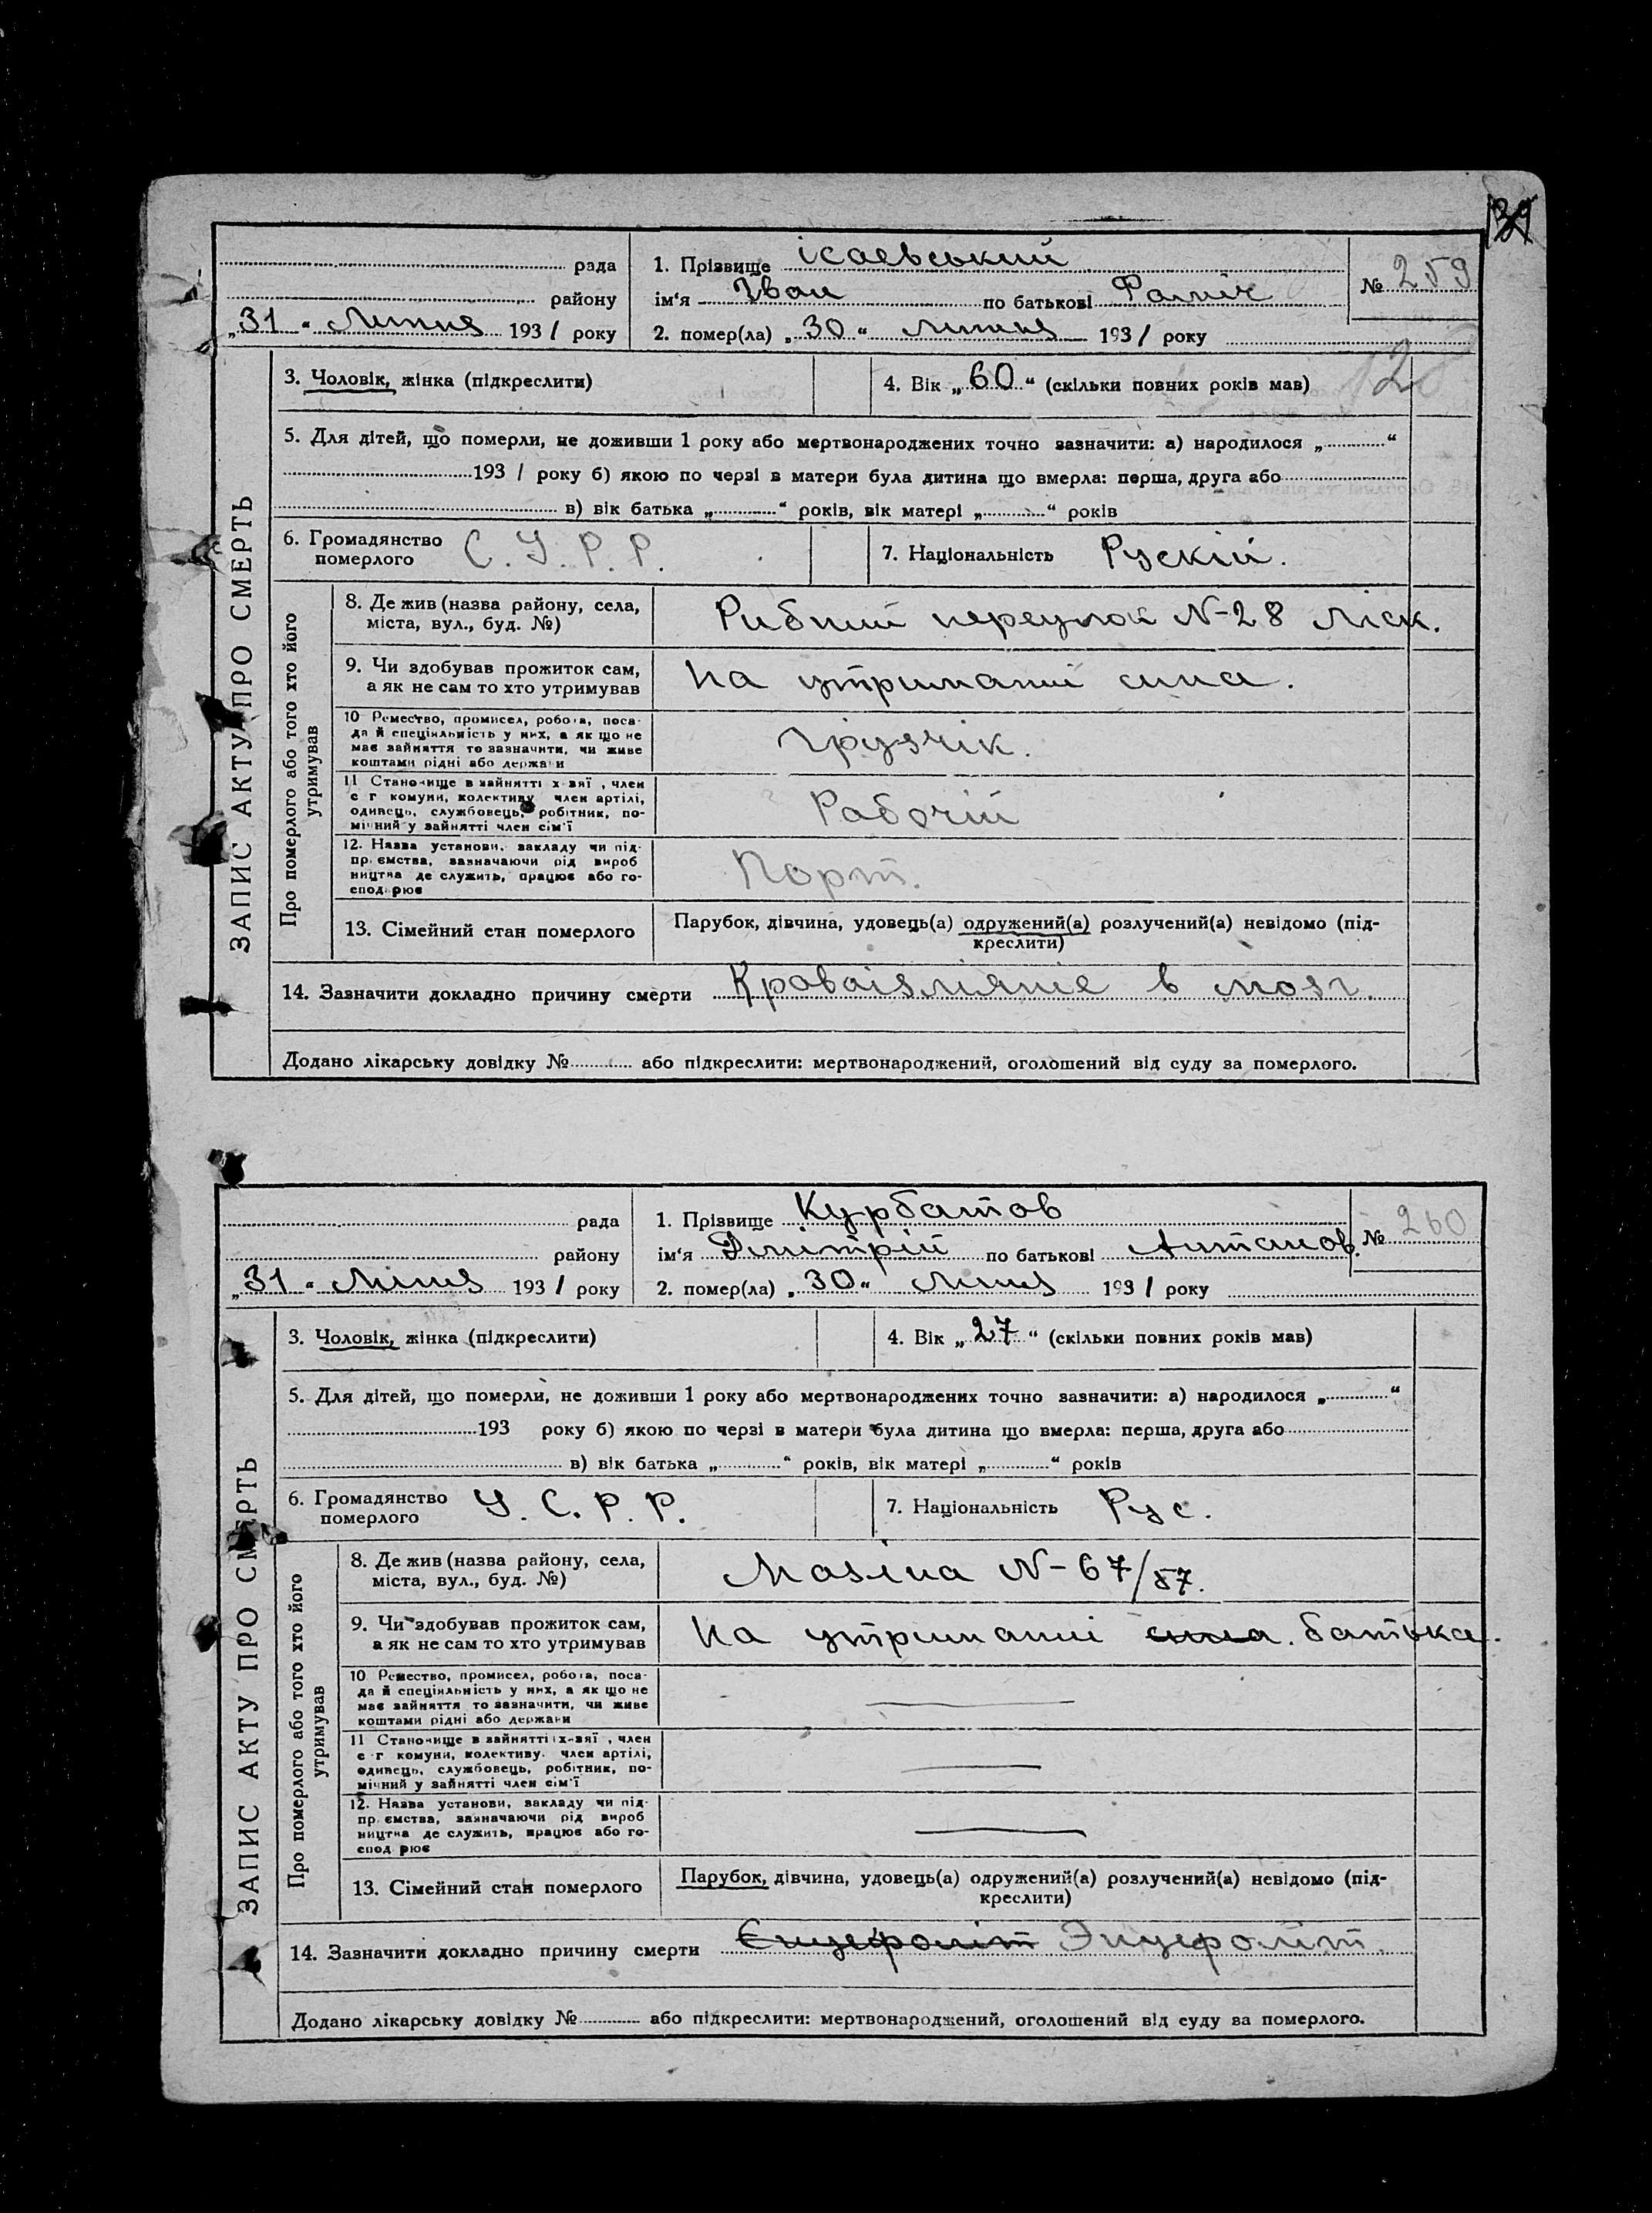 139
рада
району
„31“ Липня 1931 року
1. Прізвище ісаевський
ім‘я Іван по батькові
2. помер(ла) „30“ Липня 1931 року
№ 259
12
ЗАПИС АКТУ ПРО СМЕРТЬ
3. Чоловік, жінка (підкреслити)
4. Вік „60“ (скільки повних років мав)
5. Для дітей, що померли, не доживши 1 року або мертвонароджених точно зазначити: а) народилося „ “
1931 року б) якою по черзі в матери була дитина що вмерла: перша, друга або
в) вік батька „ “ років, вік матері „ “ років
6. Громадянство
померлого
С. У. Р. Р.
7. Національність Рускій.
Про померлого або того хто його
утримував
8. Де жив (назва району, села,
міста, вул., буд. №)
Рибний переулок N-28 Ліск.
9. Чи здобував прожиток сам,
а як не сам то хто утримував
На утриманні сина.
10 Ремество, промисел, робота, поса-
да й спеціяльність у них, а як що не
має зайняття то зазначити, чи живе
коштами рідні або держави
Грузчік.
11 Становище в зайнятті хазяї, член
с г комуни, колективу член артілі,
одинець, службовець, робітник, по-
мічний у зайнятті член сім'ї
Рабочій
12. Назва установи, закладу чи під-
приємства, зазначаючи рід вироб
ництва де служить, працює або го-
сподарює
Порт.
13. Сімейний стан померлого
Парубок, дівчина, удовець(а) одружений(а) розлучений(а) невідомо (під-
креслити)
14. Зазначити докладно причину смерти Кроваізліяніе в мозг.
Додано лікарську довідку № або підкреслити: мертвонароджений, оголошений від суду за померлого.
рада
району
„31“ Липня 1931 року
1. Прізвище Курбатов
ім‘я Дмітрій по батькові Антанов.
2. помер(ла) „30“ Липня 1931 року
№ 260
ЗАПИС АКТУ ПРО СМЕРТЬ
3. Чоловік, жінка (підкреслити)
4. Вік „27“ (скільки повних років мав)
5. Для дітей, що померли, не доживши 1 року або мертвонароджених точно зазначити: а) народилося „ “
193 року б) якою по черзі в матери була дитина що вмерла: перша, друга або
в) вік батька „ “ років, вік матері „ “ років
6. Громадянство
померлого
У. С. Р. Р.
7. Національність Рус.
Про померлого або того хто його
утримував
8. Де жив (назва району, села,
міста, вул., буд. №)
Мазіна N-67/57.
9. Чи здобував прожиток сам,
а як не сам то хто утримував
На утриманні сина. батька.
10 Ремество, промисел, робота, поса-
да й спеціяльність у них, а як що не
має зайняття то зазначити, чи живе
коштами рідні або держави
11 Становище в зайнятті хазяї, член
с г комуни, колективу член артілі,
одинець, службовець, робітник, по-
мічний у зайнятті член сім'ї
12. Назва установи, закладу чи під-
приємства, зазначаючи рід вироб
ництва де служить, працює або го-
сподарює
13. Сімейний стан померлого
Парубок, дівчина, удовець(а) одружений(а) розлучений(а) невідомо (під-
креслити)
14. Зазначити докладно причину смерти Енцефоліт Энцефоліт.
Додано лікарську довідку № або підкреслити: мертвонароджений, оголошений від суду за померлого.